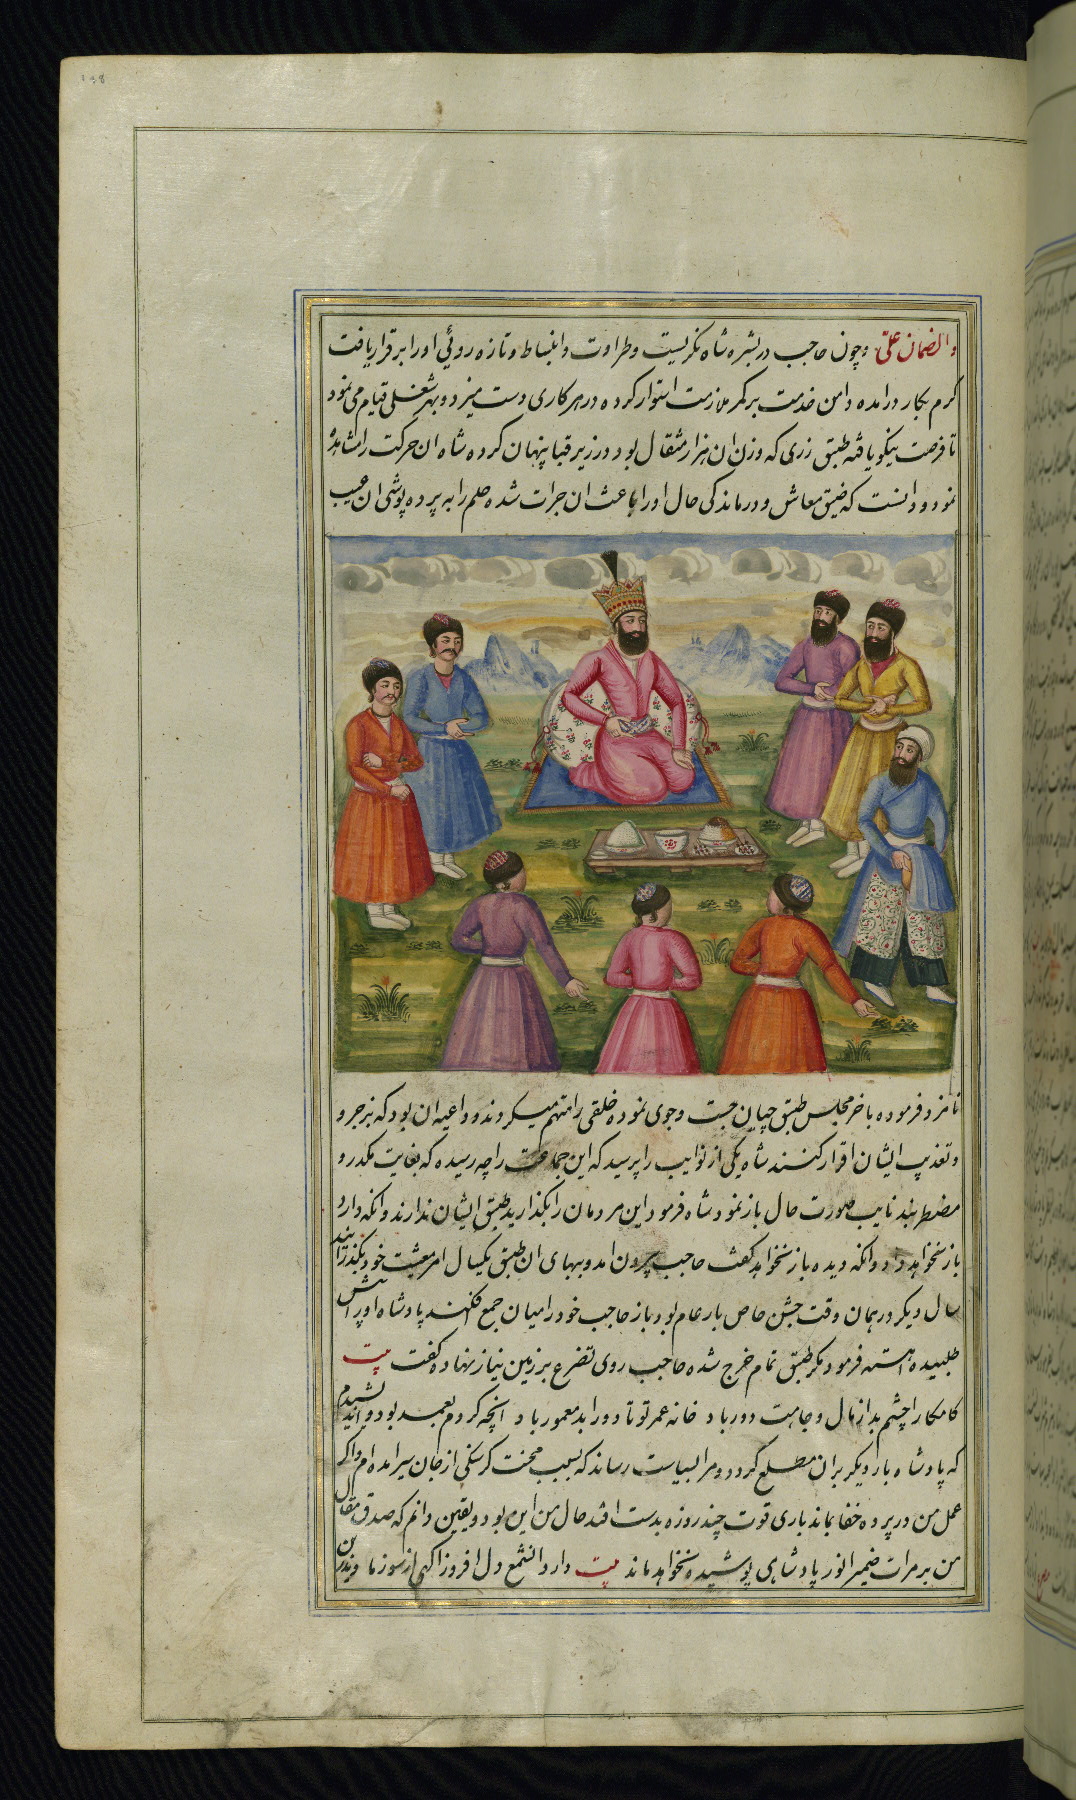 ۱۳۸
والضمان علیّ وچون حاجب در بشره شاه نکریست وطراوت وانبساط وتازه روئی او را برقرار یافت
کرم بکار درامده دامن خدمت بر کمر ملازمت استوار کرده در هر کاری دست میزد وبهر شغلی قیام می نمود
تا فرصت نیکو یافته طبق زری که وزن ان هزار مثقال بود در زیر قبا پنهان کرده شاه ان حرکت را مشاهده
نمود ودانست که ضیق معاش ودرماندکی حال او را باعث ان جرات شده حلم را به پرده پوشی ان عیب
نامزد فرموده باخر مجلس طبق چیان جست وجوی نموده خلقی را متهم میکردند وداعیه ان بود که بزجر و
وتعذیب ایشان اقرار کنند شاه یکی از نوایب را پرسید که این جماعت را چه رسیده که بغایت مکدر و
مضطربند نایب صورت حال باز نمود شاه فرمود این مردمان را بکذارید طبق ایشان ندارند وانکه دارد
باز نخواهد داد وانکه دیده باز نخواهد کفت حاجب بیرون امد وببهای ان طبق یکسال امر معیشت خود بکذرانید
سال دیکر در همان وقت جشن خاص بار عام بود باز حاجب خود را میان جمع فکند پادشاه او را پیش
طلبیده اهسته فرمود مکر طبق تمام خرج شده حاجب روی تضرع بر زمین نیاز نهاده کفت بیت
کامکارا چشم بد از مال وجاهت دور باد خانه عمر تو تا دور ابد معمور باد انچه کردم بعمد بود واندیشیدم
که پادشاه بار دیکر بران مطلع کردد ومرا بسیاست رساند که بسبب محنت کرسنکی از جان سیر امده ام واکر
عمل من در پرده خفا بماند باری قوت چند روزه بدست افتد حال من این بود ویقین دانم که صدق مقال
من بر مرات ضمیر انور پادشاهی پوشیده نخواهد ماند بیت دارد انشمع دل افروز اکهی از سوز ما